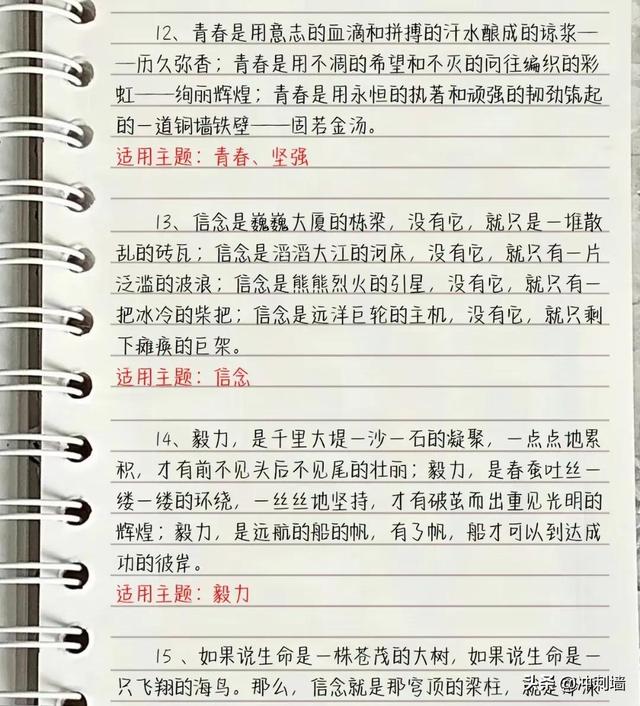 12、青春是用意志的血滴和拼搏的汗水酿成的琼浆—
—历久弥香；青春是用不凋的希望和不灭的向往编织的彩
虹——绚丽辉煌；青春是用永恒的执著和顽强的韧劲筑起
的一道铜墙铁壁——固若金汤。
适用主题：青春、坚强
13、信念是巍巍大厦的栋梁，没有它，就只是一堆散
乱的砖瓦；信念是滔滔大江的河床，没有它，就只有一片
泛滥的波浪；信念是熊熊烈火的引星，没有它，就只有一
把冰冷的柴把；信念是远洋巨轮的主机，没有它，就只剩
下瘫痪的巨架。
适用主题：信念
14、毅力，是千里大堤一沙一石的凝聚，一点点地累
积，才有前不见头后不见尾的壮丽；毅力，是春蚕吐丝一
缕一缕的环绕，一丝丝地坚持，才有破茧而出重见光明的
辉煌；毅力，是远航的船的帆，有了帆，船才可以到达成
功的彼岸。
适用主题：毅力
15、如果说生命是一株苍茂的大树，如果说生命是一
只飞翔的海鸟。那么，信念就是那穹顶的梁柱，就是
头条@冲刺墙